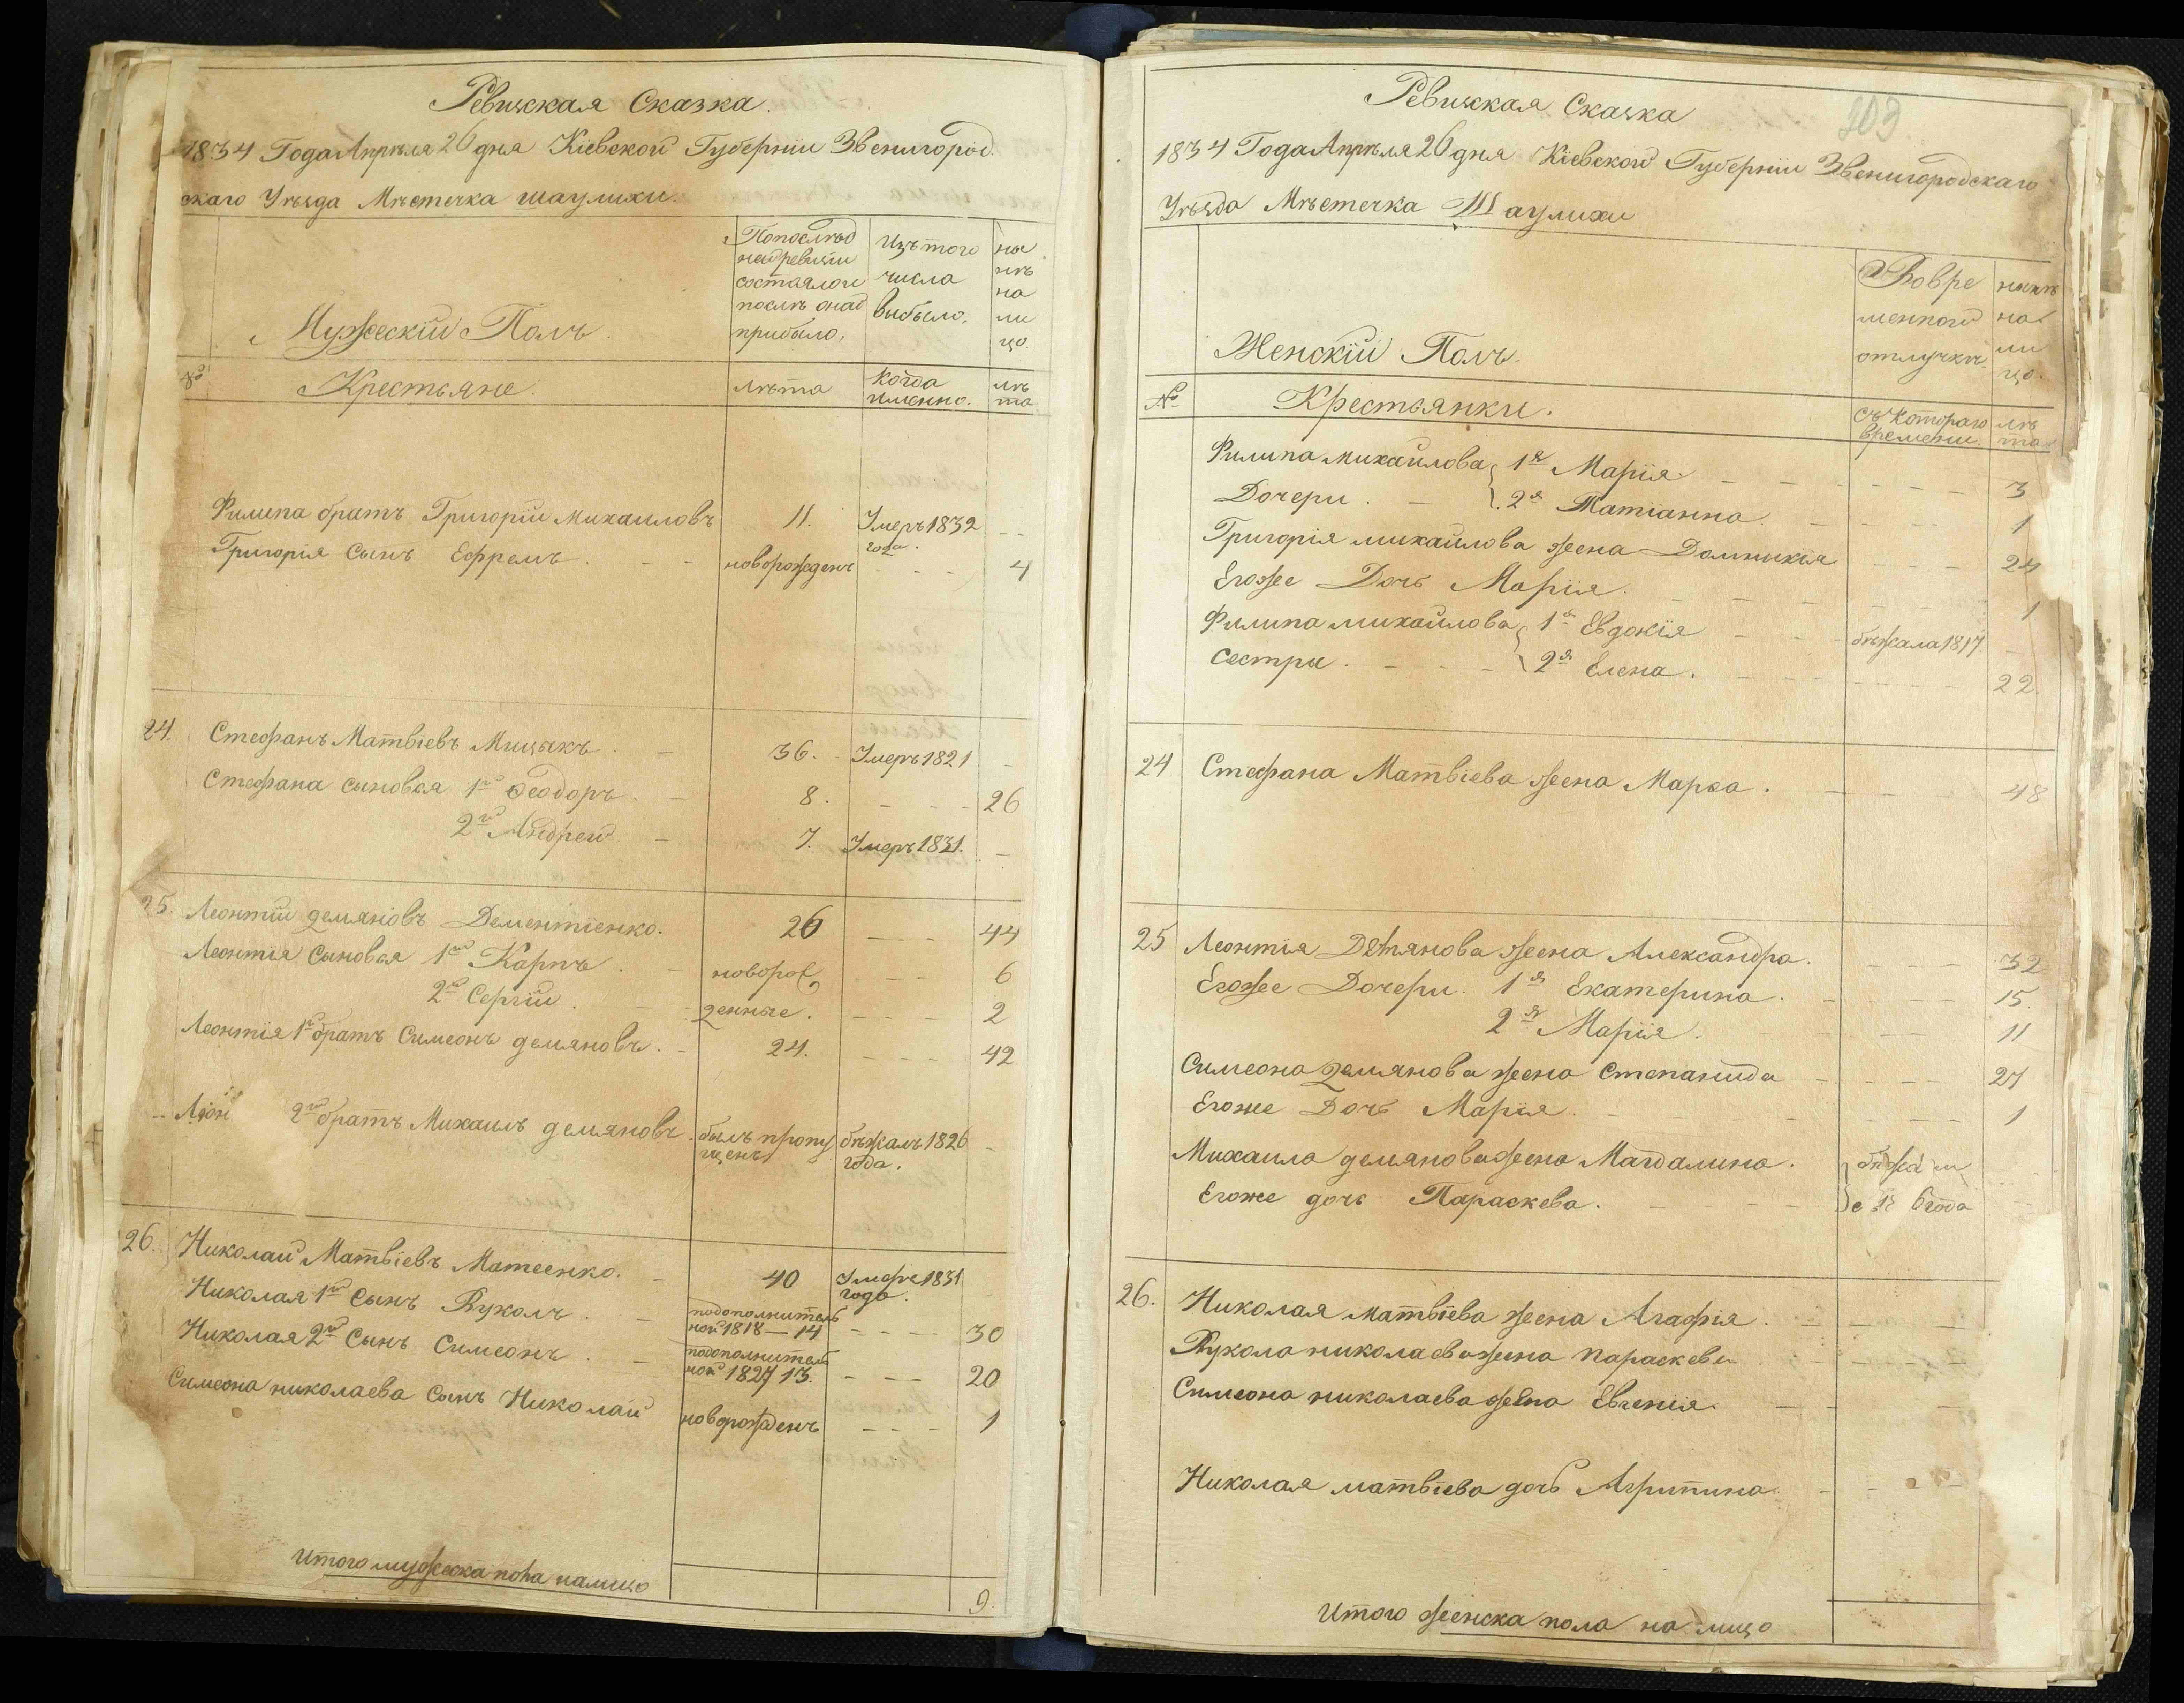 Ревизская Сказка.
1834 Года Апреля 26 дня Кіевской Губерніи Звенигород
скаго Уѣзда Мѣстечка шаулихи.
Попослѣд
ней ревизіи
состаяло и
послѣ оной
прибыло,
Изъ того
числа
выбыло,
ны
нѣ
на
ли
цо.
Мужескій Полъ.
№
Крестьяне
лѣта
когда
именно.
лѣ
та
Филипа братъ Григорій Михаиловъ 11. Умеръ 1832 года. --
Григорія Сынъ Ефремъ. -- новорожденъ -- 4
24. Стефанъ Матвіевъ Мицыкъ. - 36. Умеръ 1821 -
Стефана сыновья 1й Феодоръ. - 8. - - - 26
2й Андрей. - 7. Умеръ 1831. -
25. Леонтій демяновъ Дементіенко. 26 - - - 44
Леонтія Сыновья 1й Карпъ. - новорож - - - 6
2й Сергій. - денные. - - - 2
Леонтія 1й братъ Симеонъ демяновъ. - 24. - - - 42
Леон 2й братъ Михаилъ демяновъ. былъ пропущенъ бѣжалъ 1826 года. -
26. Николай Матвіевъ Матеенко. - 40 Умеръ 1831 года.
Николая 1й Сынъ Вуколъ. - подополнительной 1818 — 14 - - - 30
Николая 2й Сынъ Симеонъ. - подополнительной 1827 13. - - - 20
Симеона николаева Сынъ Николай новорожденъ - - - 1
Итого мужеска пола налицо 9.
Ревизская Сказка
203
1834 Года Апрѣля 26 дня Кіевской Губерніи Звенигородскаго
Уѣзда Мѣстечка Шаулихи
Вовре
менной
отлучкѣ.
нынѣ
на
ли
цо.
Женскій Полъ.
№
Крестьянки.
Съ котораго
времени.
лѣ
та
Филипа михайлова 1я Марія - - - 3
Дочери. - 2я Татіанна. - - - 1
Григорія михайлова жена Домникія - - - 24
Егоже Дочь Марія. - - - 1
Филипа михайлова 1я Евдокія - - - бѣжала 1817. -
сестры. - - - 2я Елена. - - - 22.
24 Стефана Матвіева жена Марѳа. - - - 48
25 Леонтія Демянова жена Александра. - - - 32
Егоже Дочери. 1я Екатерина. - - - 15.
2я Марія. - - - 11
Симеона демянова жена Степанида - - - 27
Егоже Дочь Марія. - - - 1
Михаила демянова жена Магдалина.
Егоже дочь Параскева. - - - года
26. Николая матвіева жена Агафія. - - -
Вукола николаева жена параскева - - -
Симеона николаева жена Евгенія. - -
Николая матвіева дочь Агрипина - -
Итого женска пола на лицо